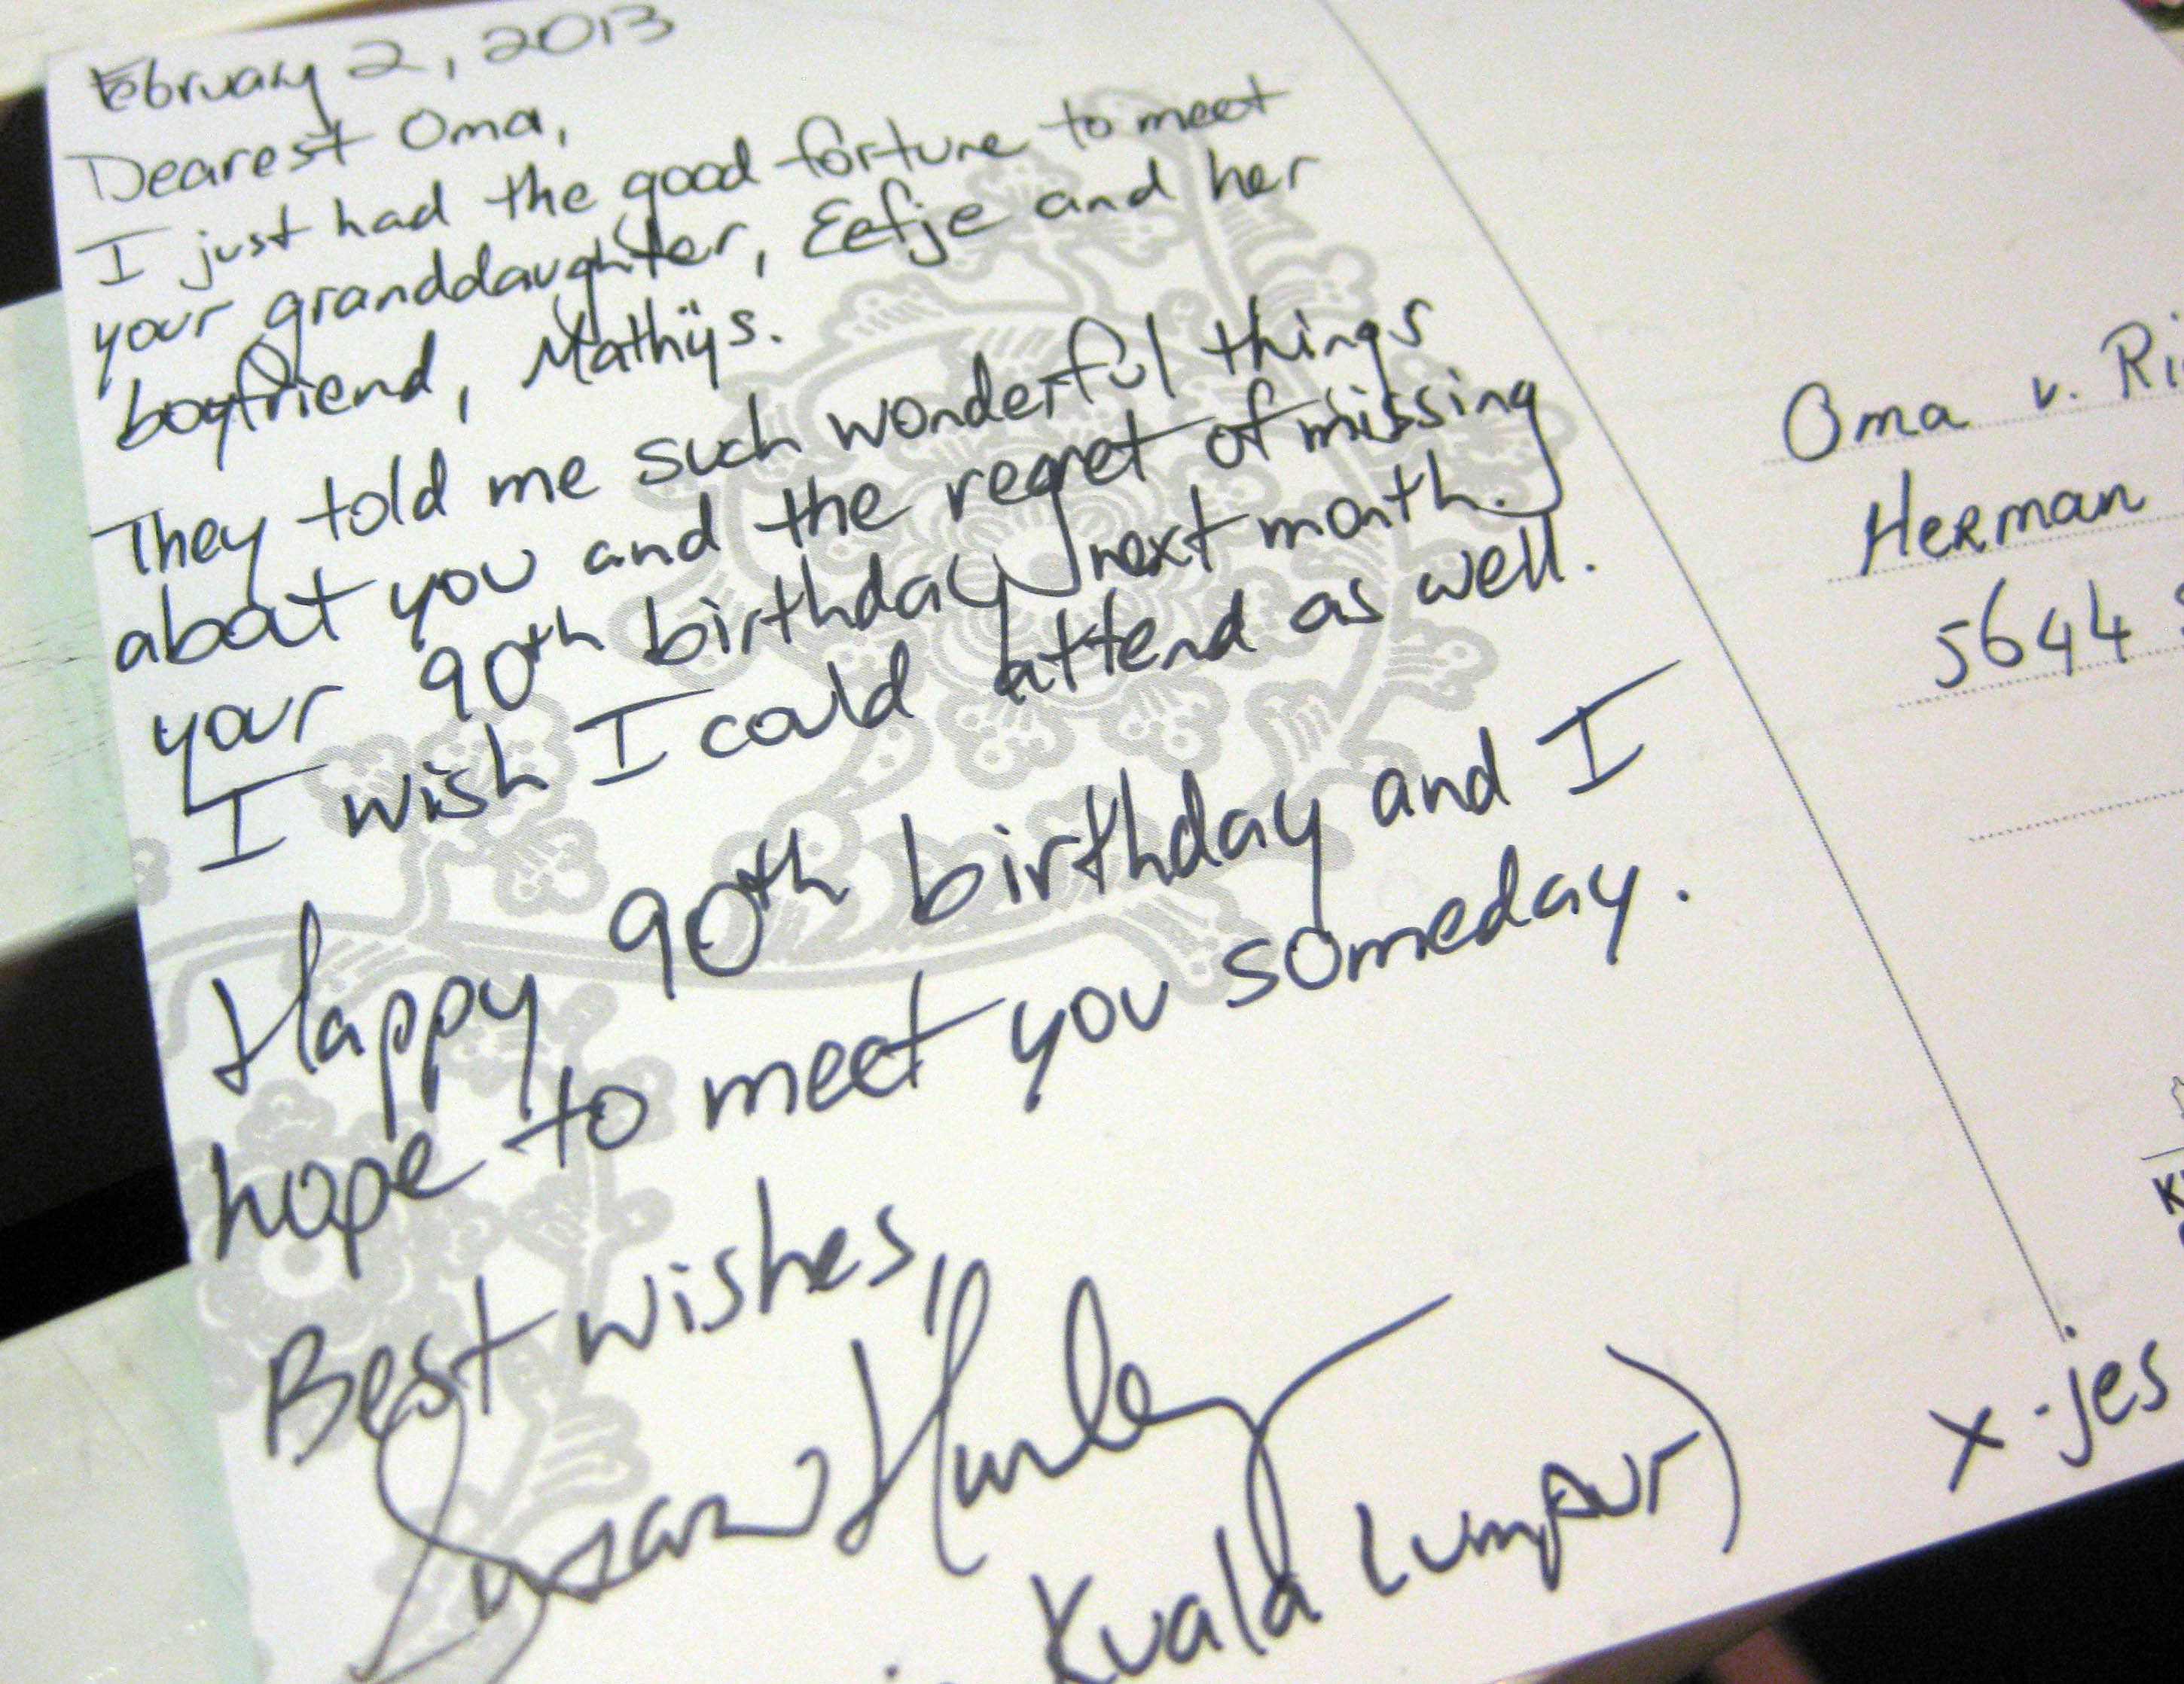 February 2, 2013
Dearest Oma,
I just had the good fortune to meet
your granddaughter, Eefje and her
boyfriend, Mathijs.
They told me such wonderful things
about you and the regret of missing
your 90th birthday next month.
I wish I could attend as well.
Happy 90th birthday and I
hope to meet you someday.
Best wishes,
Susan Hurley
Kuala Lumpur)
Oma v. Ri
Herman
5644
x -jes